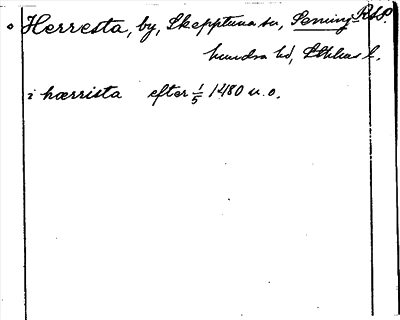 Herresta, by, Skepptuna sn, Seming- RAP.
hundra hd, Sthlms l.
i hærrista efter 1/5 1480 u.o.